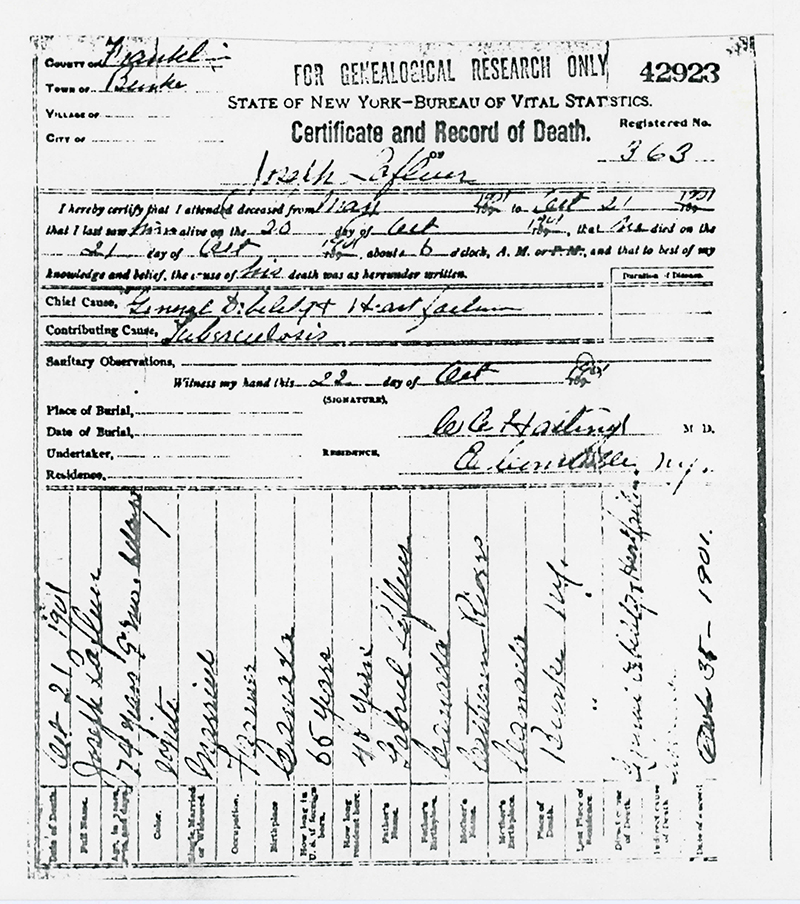 COUNTY OF Franklin
TOWN OF Burke
VILLAGE OF
CITY OF
FOR GENEALOGICAL RESEARCH ONLY
42923
STATE OF NEW YORK—BUREAU OF VITAL STATISTICS.
Certificate and Record of Death.
Registered No.
363
OF
Joseph Lafleur
I hereby certify that I attended deceased from May 1901 to Oct 21 1901
that I last saw him alive on the 20 day of Oct 1901, that he died on the
21 day of Oct 1901, about 6 o'clock, A. M. or P. M., and that to best of my
knowledge and belief, the cause of his death was as hereunder written.
Duration of Disease.
Chief Cause, General Debility & Heart failure
Contributing Cause, Tuberculosis
Sanitary Observations,
Witness my hand this 22 day of Oct 1901
(SIGNATURE),
Place of Burial,
Date of Burial,
M. D.
Undertaker,
RESIDENCE,
N.Y.
Residence,
Date of Death. Oct 21 1901
Full Name. Joseph Lafleur
Age, in years, mos. and days. 74 years
Color. White
Single, Married or Widowed Married
Occupation. Farmer
Birthplace Canada
How long in U. S. if foreign born. 65 years
How long resident here. 40 years
Father's Name. Gabriel Lafleur
Father's Birthplace. Canada
Mother's Name.
Mother's Birthplace. Canada
Place of Death. Burke N.Y.
Last Place of Residence. "
Direct cause of Death. General Debility & Heart failure
Indirect cause of Death
Date of Record 1901.